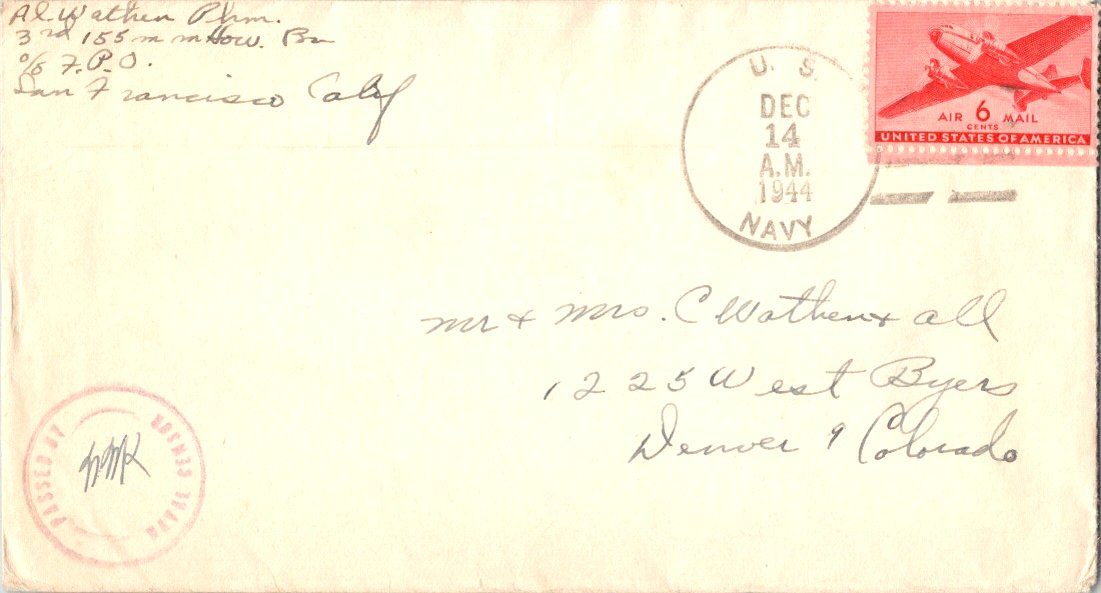 Al Wathen Phm.
3rd 155 mm How. Bn
c/o F.P.O.
San Francisco Calif
U. S.
DEC
14
A.M.
1944
NAVY
AIR 6 MAIL
CENTS
UNITED STATES OF AMERICA
Mr & Mrs. C Wathen & all
1225 West Byers
Denver 9 Colorado
PASSED BY
NAVAL CENSOR